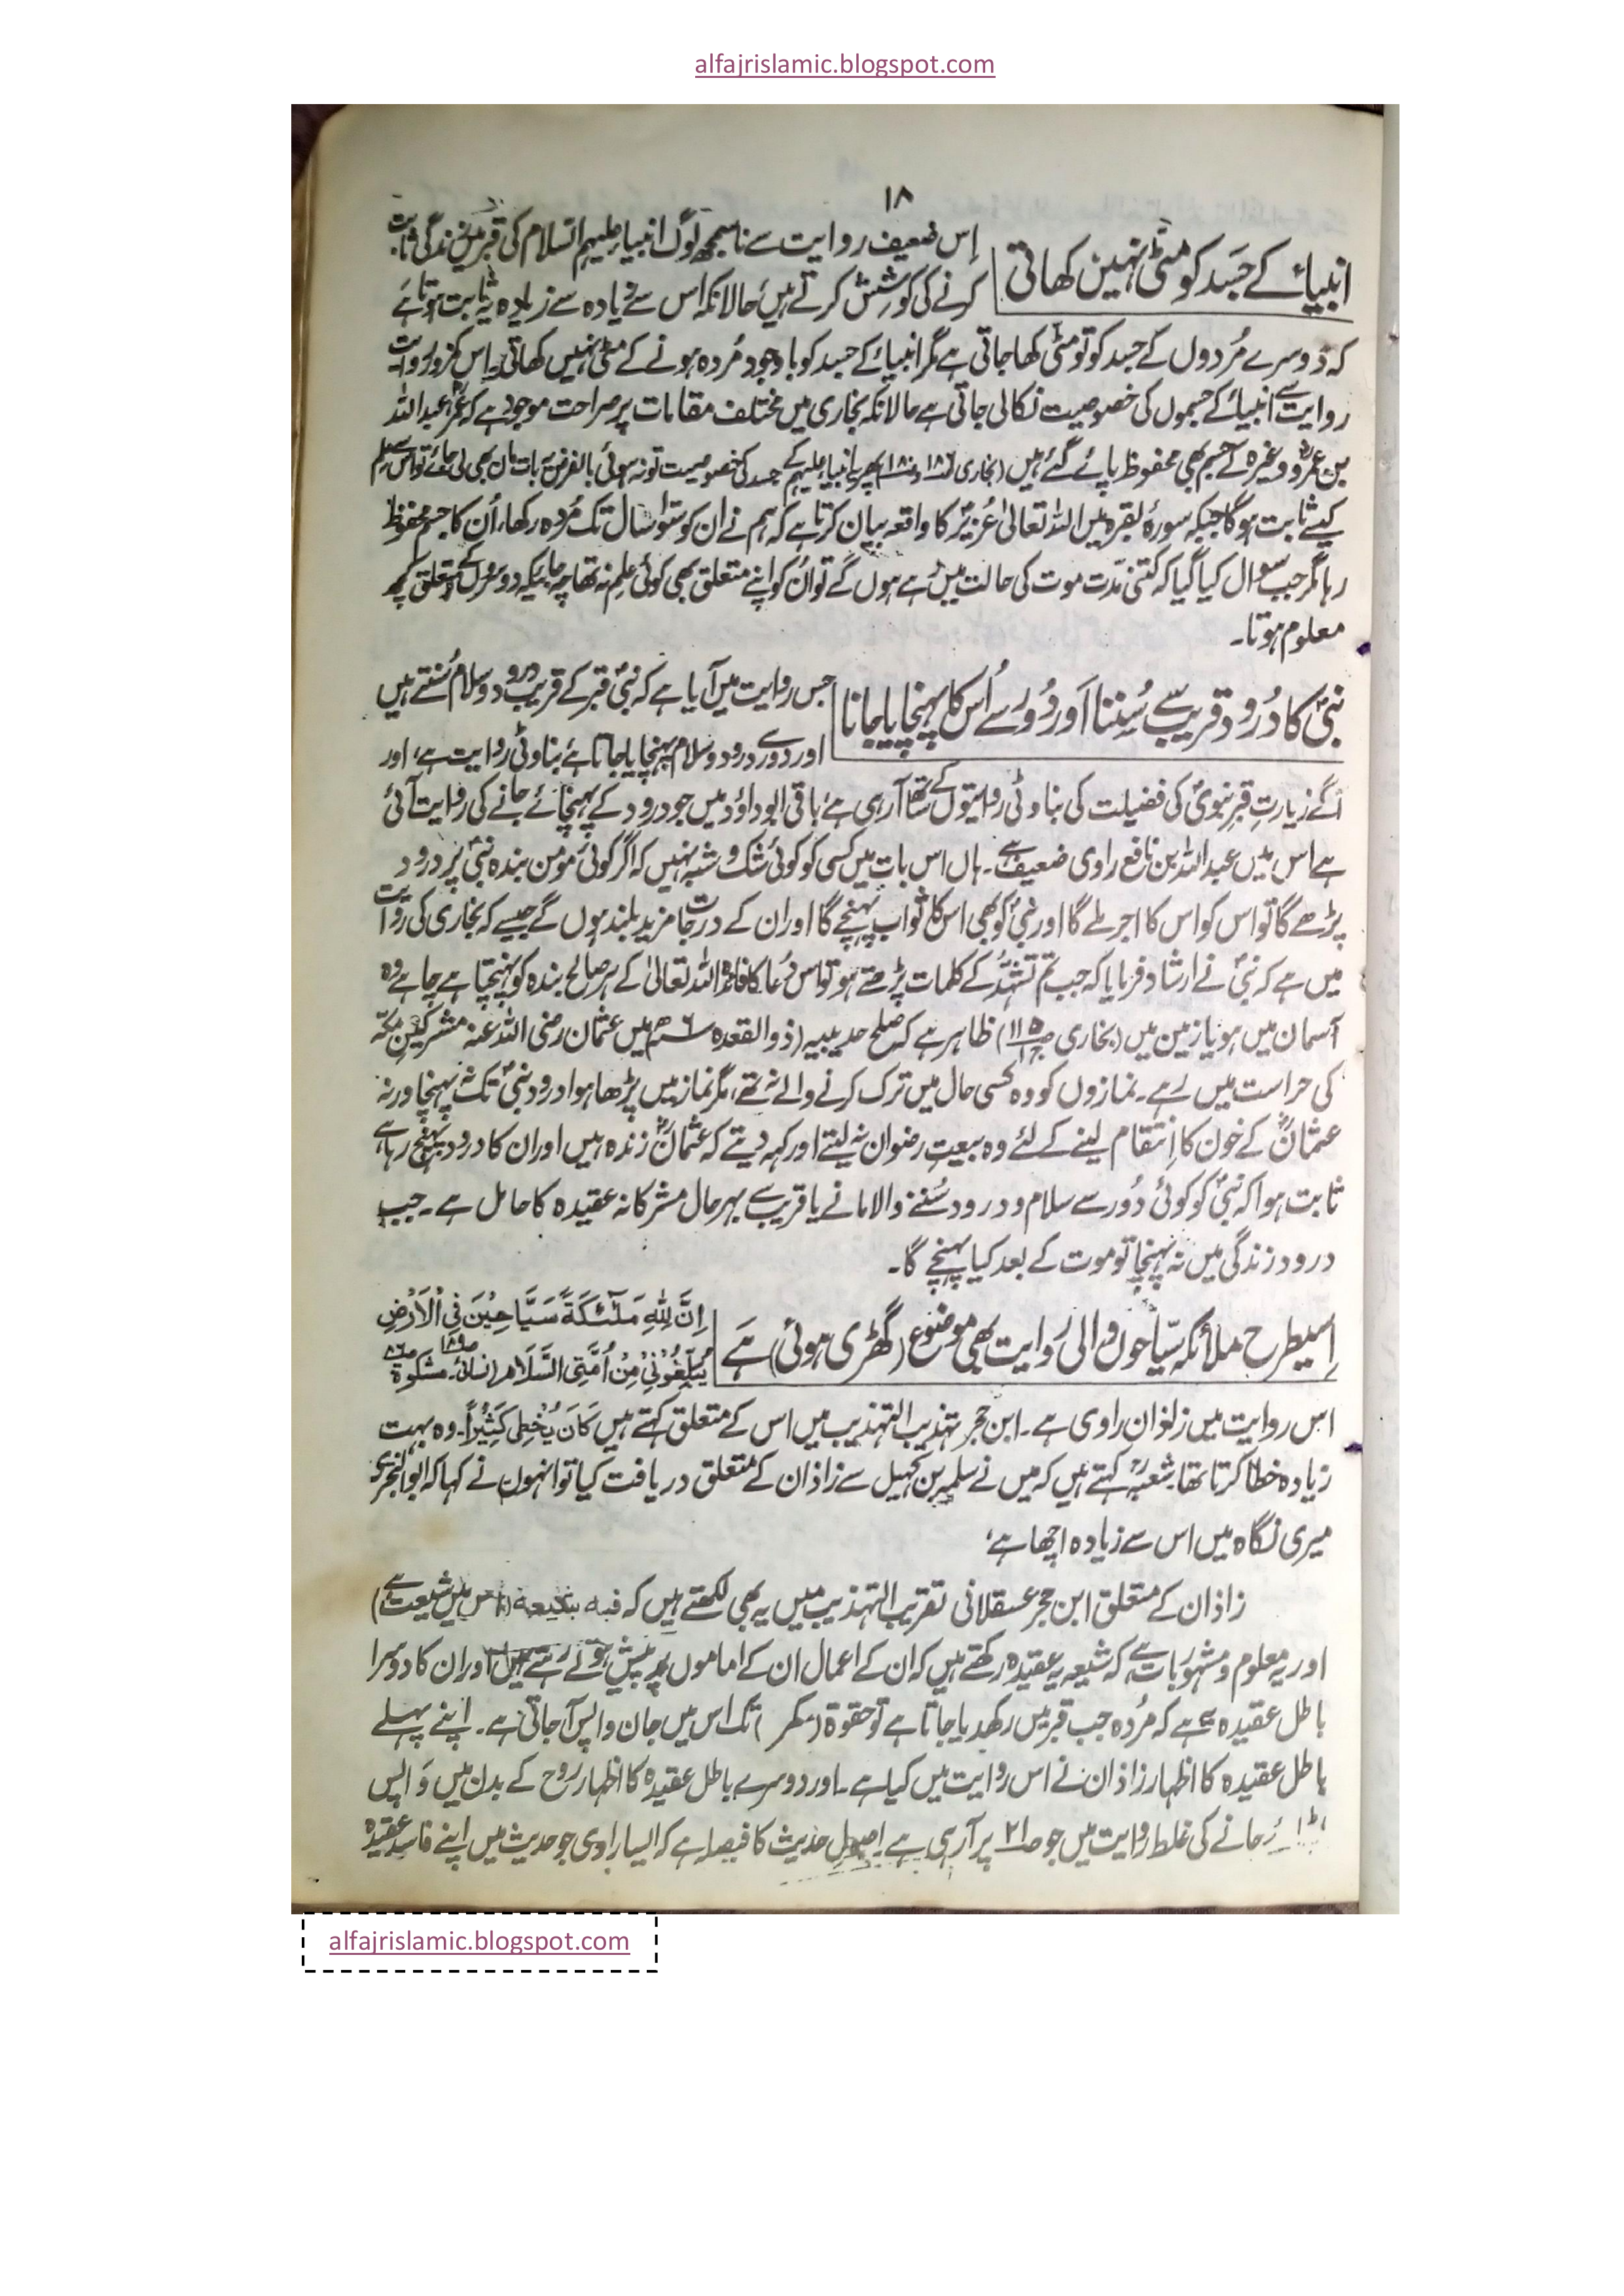 alfajrislamic.blogspot.com
۱۸
انبیاءؑ کے جَسَد کو مٹّی نہیں کھاتی
اِس ضعیف روایت سے ناسمجھ لوگ انبیاء علیہم السّلام کی قبر میں زندگی ثابت
کرنے کی کوشِش کرتے ہیں حالانکہ اس سے زیادہ سے زیادہ یہ ثابت ہوتا ہے
کہ دُوسرے مُردوں کے جسد کو تو مٹّی کھا جاتی ہے مگر انبیاءؑ کے جسد کو باوجود مُردہ ہونے کے مٹّی نہیں کھاتی۔ اِس کمزور روایت
روایت سے انبیاءؑ کے جسموں کی خصوصیت نکالی جاتی ہے حالانکہ بخاری میں مختلف مقامات پر صراحت موجود ہے کہ عمرؓ، عبداللہ
بن عمروؓ وغیرہ کے جسم بھی محفوظ پائے گئے ہیں (بخاری ص۱۸۶ و ص۱۸۰) پھر یہ انبیاء علیہم کے جسد کی خصوصیت تو نہ ہوئی بالفرض یہ بات مان بھی لی جائے تو اس سے علم
کیسے ثابت ہوگا جبکہ سورۂ بقرہ میں اللہ تعالیٰ عُزیرؑ کا واقعہ بیان کرتا ہے کہ ہم نے ان کو سَو سال تک مُردہ رکھا، اُن کا جسم محفوظ
رہا مگر جب سوال کیا گیا کہ کتنی مدّت موت کی حالت میں رہے ہوں گے تو اُن کو اپنے متعلق بھی کوئی علم نہ تھا چہ جائیکہ دوسروں کے متعلق کچھ
معلوم ہوتا۔
نبیؐ کا دُرود قریب سے سُننا اَور دُور سے اُس کا پہنچایا جانا
جس روایت میں آیا ہے کہ نبیؐ قبر کے قریب درود و سلام سُنتے ہیں
اور دُور سے درود و سلام پہنچایا جاتا ہے بناوٹی روایت ہے، اور
آگے زیارتِ قبرِ نبویؐ کی فضیلت کی بناوٹی روایتوں کے ساتھ آرہی ہے، باقی ابوداؤد میں جو درود کے پہنچائے جانے کی روایت آئی
ہے اس میں عبداللہ بن نافع راوی ضعیف ہے۔ ہاں اس بات میں کسی کو کوئی شک و شبہ نہیں کہ اگر کوئی مومن بندہ نبیؐ پر درود
پڑھے گا تو اس کو اس کا اجر ملے گا اور نبیؐ کو بھی اس کا ثواب پہنچے گا اور ان کے درجات مزید بلند ہوں گے جیسے کہ بخاری کی روایت
میں ہے کہ نبیؐ نے ارشاد فرمایا کہ جب تم تشہُّد کے کلمات پڑھتے ہو تو اس دُعا کا فائدہ اللہ تعالیٰ کے ہر صالح بندہ کو پہنچتا ہے چاہے وہ
آسمان میں ہو یا زمین میں (بخاری ص۱۱۵ ج۱) ظاہر ہے کہ صلح حدیبیہ (ذوالقعدہ ۶ھ) میں عثمان رضی اللہ عنہ مشرکینِ مکّہ
کی حراست میں رہے۔ نمازوں کو وہ کسی حال میں ترک کرنے والے نہ تھے، مگر نماز میں پڑھا ہوا درود نبیؐ تک نہ پہنچا ورنہ
عثمانؓ کے خون کا اِنتقام لینے کے لئے وہ بیعتِ رضوان نہ لیتے اور کہہ دیتے کہ عثمانؓ زندہ ہیں اور ان کا درود پہنچ رہا ہے
ثابت ہوا کہ نبیؐ کو کوئی دُور سے سلام و درود سُننے والا مانے یا قریب سے بہرحال مشرکانہ عقیدہ کا حامل ہے۔ جب
درود زندگی میں نہ پہنچا تو موت کے بعد کیا پہنچے گا۔
اِسیطرح ملائکہ سیّاحون والی رِوایت بھی موضوع (گھڑی ہوئی) ہَے
اِنَّ لِلّٰهِ مَلٰٓئِكَةً سَيَّاحِيْنَ فِي الْاَرْضِ
يُبَلِّغُوْنِيْ مِنْ اُمَّتِي السَّلَامَ (نسائی ص۱۸۹۔ مشکوٰۃ ص۸۶
اس روایت میں زاذان راوی ہے۔ ابن حجر تہذیب التہذیب میں اس کے متعلق کہتے ہیں كَانَ يُخْطِئُ كَثِيْرًا۔ وہ بہت
زیادہ خطا کرتا تھا۔ شعبہؒ کہتے ہیں کہ میں نے سلمہ بن کہیل سے زاذان کے متعلق دریافت کیا تو انہوں نے کہا کہ ابوالبختری
میری نگاہ میں اس سے زیادہ اچھا ہے،
زاذان کے متعلق ابن حجر عسقلانی تقریب التہذیب میں یہ بھی لکھتے ہیں کہ فیہ (اس میں شیعیت ہے)
اور یہ معلوم و مشہور بات ہے کہ شیعہ یہ عقیدہ رکھتے ہیں کہ ان کے اعمال ان کے اماموں پر پیش ہوتے رہتے ہیں اور ان کا دوسرا
باطل عقیدہ یہ ہے کہ مُردہ جب قبر میں رکھدیا جاتا ہے تو حقوۃ (کمر) تک اس میں جان واپس آجاتی ہے۔ اپنے پہلے
باطل عقیدہ کا اظہار زاذان نے اس روایت میں کیا ہے۔ اور دوسرے باطل عقیدہ کا اظہار روح کے بدن میں وَاپس
جانے کی غلط روایت میں جو ص۲۱ پر آرہی ہے۔ اصولِ حدیث کا فیصلہ ہے کہ ایسا راوی جو حدیث میں اپنے فاسد عقیدہ
alfajrislamic.blogspot.com